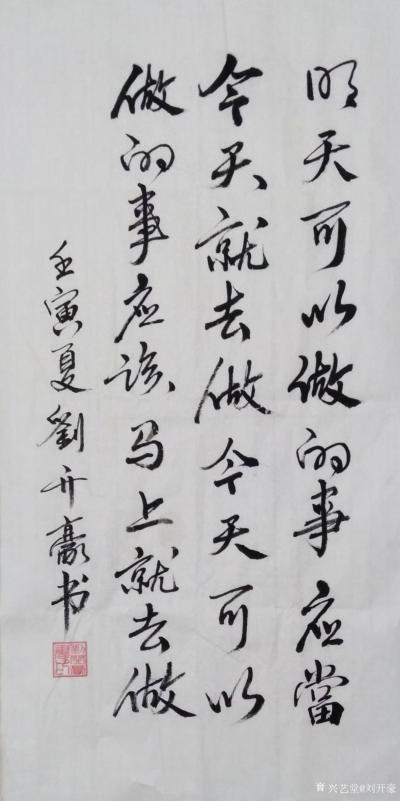 明天可以做的事应當
今天就去做今天可以
做的事应该马上就去做
壬寅夏劉开豪书
兴艺堂@刘开豪